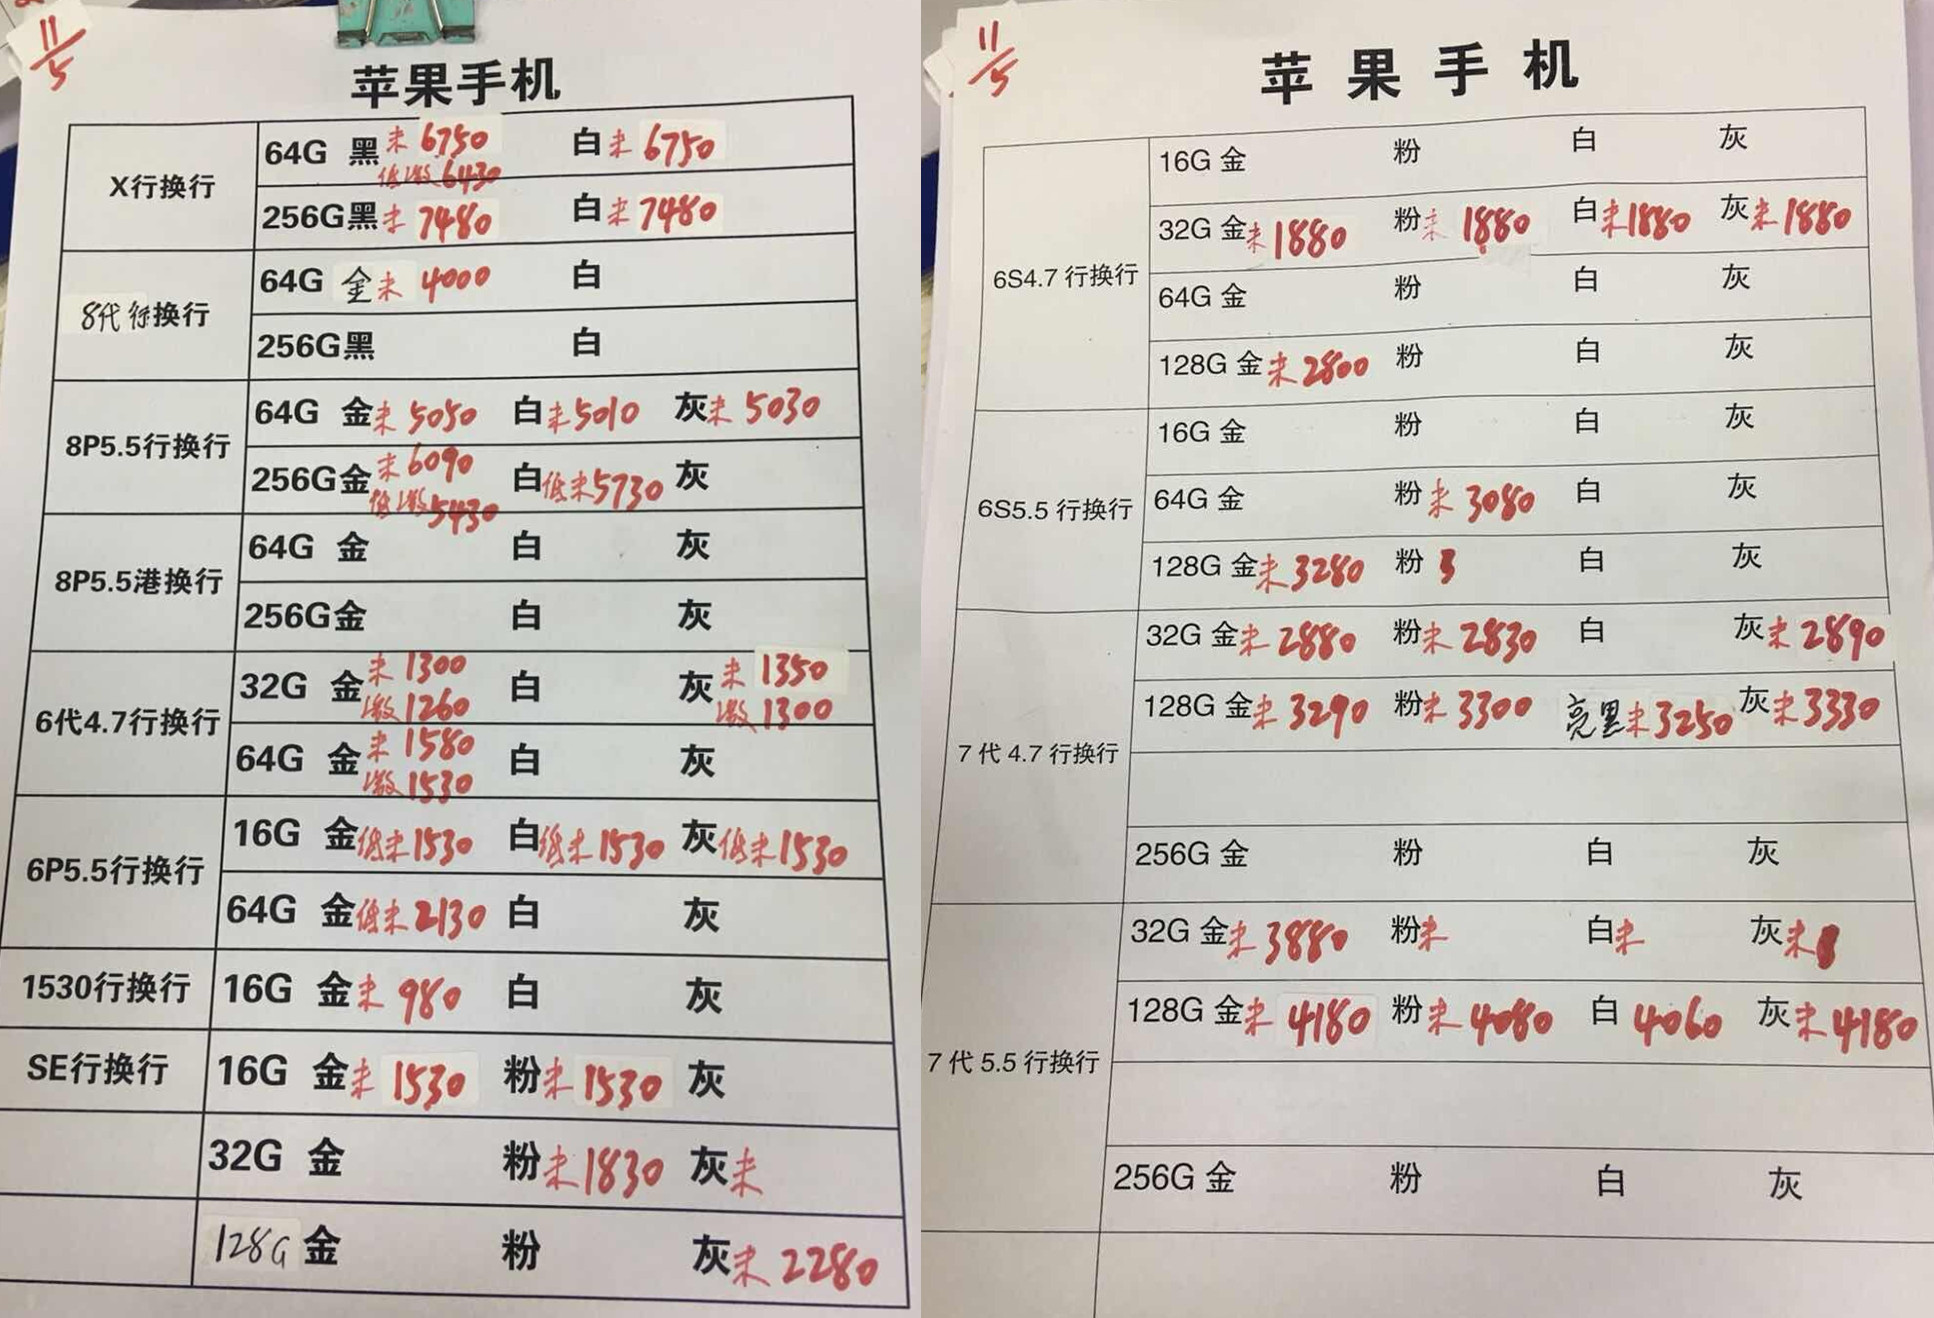 11/5
苹果手机
X行换行
64G 黑未6750 白未6750
低激6430
256G黑未7480 白未7480
8代行换行
64G 金未4000 白
256G黑 白
8P5.5行换行
64G 金未5050 白未5010 灰未5030
256G金未6090 白低未5730 灰
低激5430
8P5.5港换行
64G 金 白 灰
256G金 白 灰
6代4.7行换行
32G 金未1300 白 灰未1350
激1260 激1300
64G 金未1580 白 灰
激1530
6P5.5行换行
16G 金低未1530 白低未1530 灰低未1530
64G 金低未2130 白 灰
1530行换行
16G 金未980 白 灰
SE行换行
16G 金未1530 粉未1530 灰
32G 金 粉未1830 灰未
128G 金 粉 灰未2280
11/5
苹果手机
6S4.7行换行
16G金 粉 白 灰
32G金未1880 粉未1880 白未1880 灰未1880
64G金 粉 白 灰
128G金未2800 粉 白 灰
6S5.5行换行
16G金 粉 白 灰
64G金 粉未3080 白 灰
128G金未3280 粉 白 灰
7代4.7行换行
32G金未2880 粉未2830 白 灰未2890
128G金未3290 粉未3300 亮黑未3250 灰未3330
256G金 粉 白 灰
7代5.5行换行
32G金未3880 粉未 白未 灰未
128G金未4180 粉未4080 白4060 灰未4180
256G金 粉 白 灰